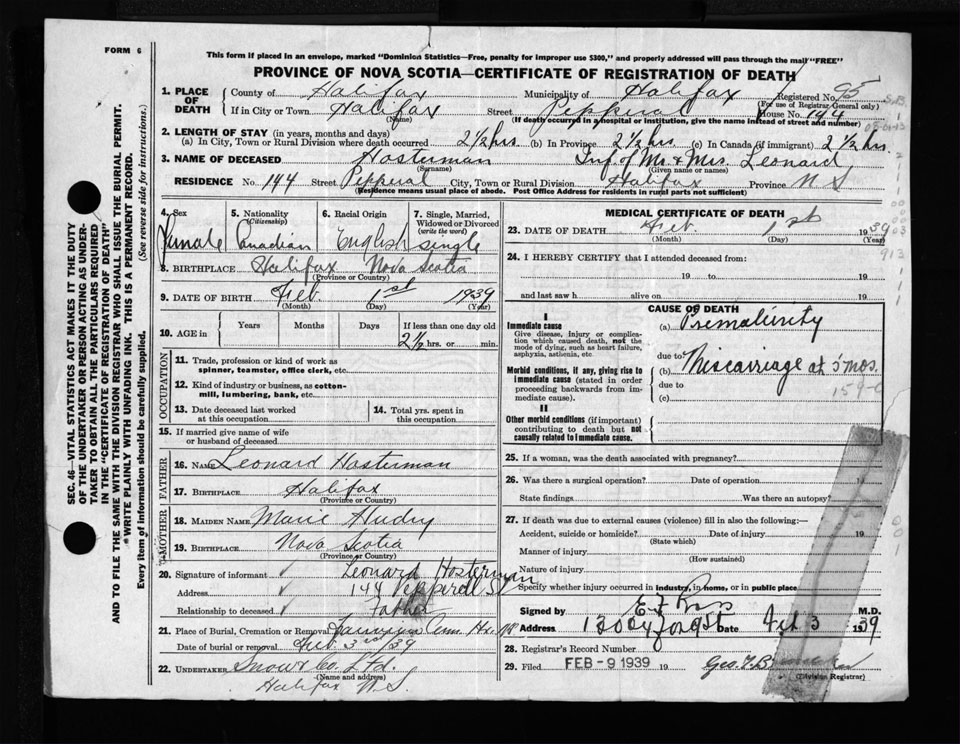 FORM 6
This form if placed in an envelope, marked "Dominion Statistics—Free, penalty for improper use $300," and properly addressed will pass through the mail "FREE"
PROVINCE OF NOVA SCOTIA—CERTIFICATE OF REGISTRATION OF DEATH
1. PLACE OF DEATH
County of Halifax Municipality of Halifax Registered No. 95
(For use of Registrar General only)
If in City or Town Halifax Street Pepperal House No. 144
(Name) (If death occurred in a hospital or institution, give the name instead of street and number)
2. LENGTH OF STAY (in years, months and days)
(a) In City, Town or Rural Division where death occurred 2½ hrs. (b) In Province 2½ hrs. (c) In Canada (if immigrant) 2½ hrs.
3. NAME OF DECEASED Hosterman Inf. of Mr. & Mrs. Leonard
(Surname) (Given name or names)
RESIDENCE No. 144 Street Pepperal City, Town or Rural Division Halifax Province N S
(Residence means usual place of abode. Post Office Address for residents in rural parts not sufficient)
4. Sex
female
5. Nationality
(Citizenship)
Canadian
6. Racial Origin
English
7. Single, Married, Widowed or Divorced
(write the word)
single
8. BIRTHPLACE Halifax Nova Scotia
(Province or Country)
9. DATE OF BIRTH Feb. 1st 1939
(Month) (Day) (Year)
10. AGE in
Years Months Days If less than one day old
2½ hrs. or min.
OCCUPATION
11. Trade, profession or kind of work as spinner, teamster, office clerk, etc.
12. Kind of industry or business, as cotton-mill, lumbering, bank, etc.
13. Date deceased last worked at this occupation
14. Total yrs. spent in this occupation
15. If married give name of wife or husband of deceased
FATHER
16. NAME Leonard Hosterman
17. BIRTHPLACE Halifax
(Province or Country)
MOTHER
18. MAIDEN NAME Marie
19. BIRTHPLACE Nova Scotia
(Province or Country)
20. Signature of informant ✓ Leonard Hosterman
Address ✓ 144 Pepperell St
Relationship to deceased ✓ Father
21. Place of Burial, Cremation or Removal Cem. Hx.
Date of burial or removal Feb 3rd /39
22. UNDERTAKER Snow & Co. Ltd.
(Name and address)
Halifax N.S.
MEDICAL CERTIFICATE OF DEATH
23. DATE OF DEATH Feb. 1st 1939
(Month) (Day) (Year)
24. I HEREBY CERTIFY that I attended deceased from:
19 to 19
and last saw h alive on 19
CAUSE OF DEATH
I
Immediate cause
Give disease, injury or complication which caused death, not the mode of dying, such as heart failure, asphyxia, asthenia, etc.
(a) Prematurity
due to
Morbid conditions, if any, giving rise to immediate cause (stated in order proceeding backwards from immediate cause).
(b) Miscarriage at 5 mos.
due to
159-0
(c)
II
Other morbid conditions (if important) contributing to death but not causally related to immediate cause.
25. If a woman, was the death associated with pregnancy?
26. Was there a surgical operation? Date of operation 19
State findings Was there an autopsy?
27. If death was due to external causes (violence) fill in also the following:—
Accident, suicide or homicide? Date of injury 19
(State which)
Manner of injury
(How sustained)
Nature of injury
Specify whether injury occurred in industry, in home, or in public place
Signed by E F Ross M.D.
Address Date Feb 3 1939
28. Registrar's Record Number
29. Filed FEB - 9 1939 19
(Division Registrar)
SEC. 46—VITAL STATISTICS ACT MAKES IT THE DUTY OF THE UNDERTAKER OR PERSON ACTING AS UNDERTAKER TO OBTAIN ALL THE PARTICULARS REQUIRED IN THE "CERTIFICATE OF REGISTRATION OF DEATH" AND TO FILE THE SAME WITH THE DIVISION REGISTRAR WHO SHALL ISSUE THE BURIAL PERMIT.
WRITE PLAINLY WITH UNFADING INK. THIS IS A PERMANENT RECORD.
Every item of information should be carefully supplied. (See reverse side for instructions.)